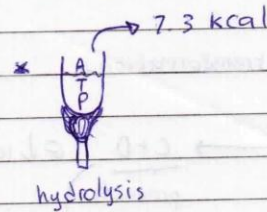 7.3 kcal
* A
T
P
hydrolysis